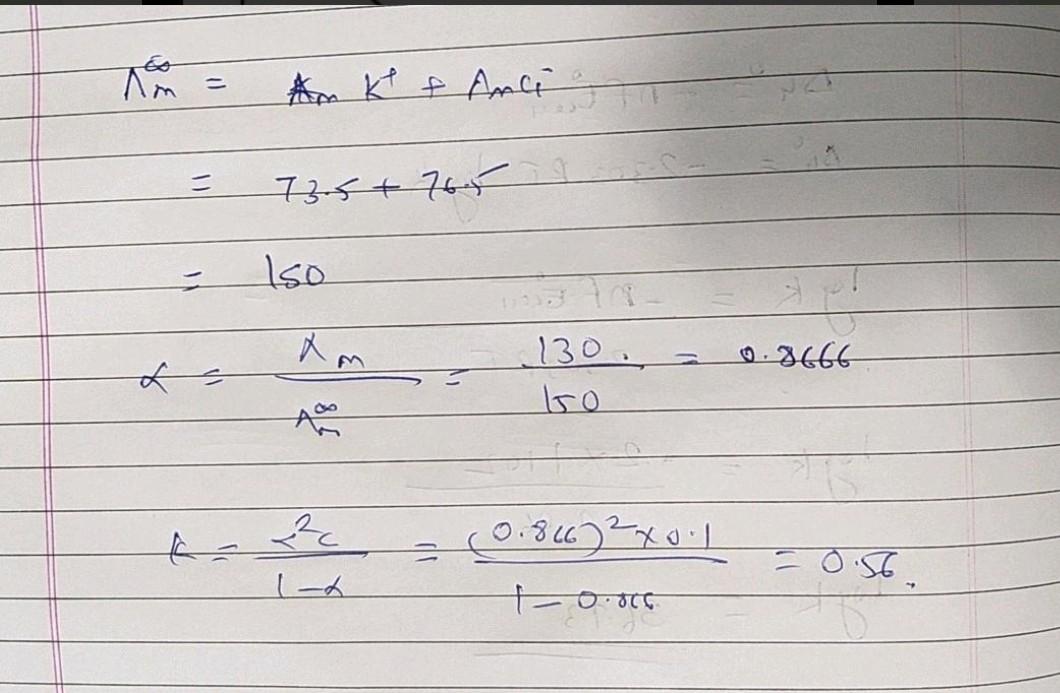 Λm∞ = Λm K+ + ΛmCl-
= 73.5 + 76.5
= 150
α = Λm / Λm∞ = 130 / 150 = 0.8666
K = α²c / 1-α = (0.866)² x 0.1 / 1 - 0.866 = 0.56